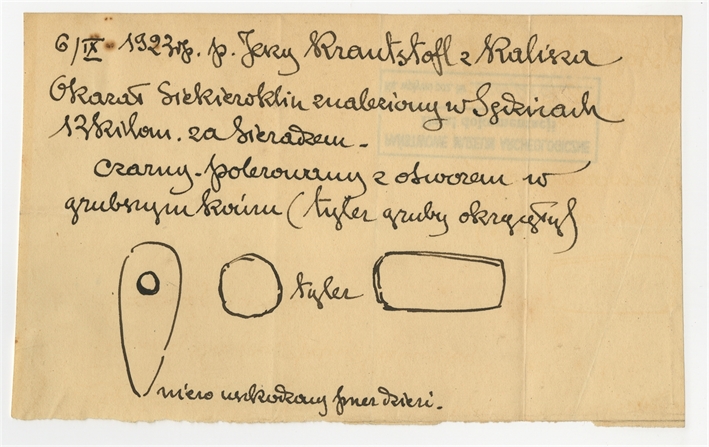 6/IX 1923 r. p. Jerzy Krautstofl z Kalisza
Okazał siekieroklin znaleziony w Sędzicach
12 kilom. za Sieradzem -
czarny-polerowany z otworem w
grubszym końcu (tyler gruby okrągły)
tyler
nieco uszkodzony przez dzieci.